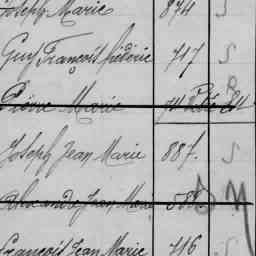 Joseph Marie 874 S
Guy François frédéric 717 S
Pierre Marie
Joseph Jean Marie 887. S
Alexandre Jean Marie 588
François Jean Marie 716 S